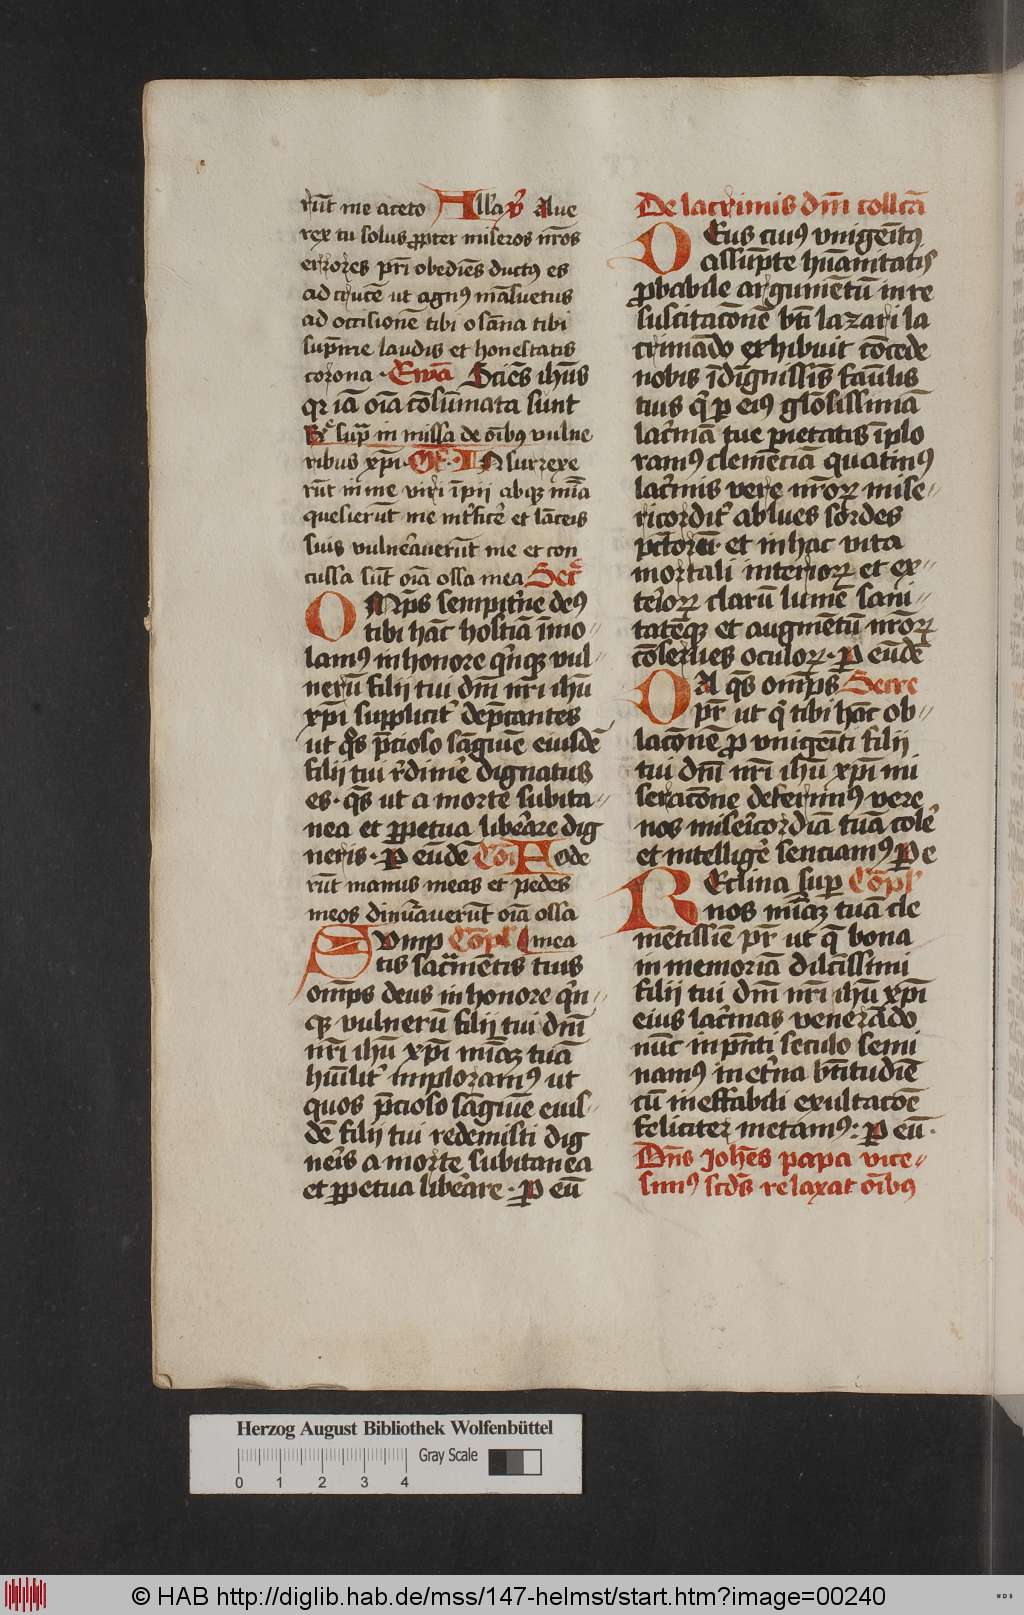 rūt me aceto Alla v̄ Aue
rex tu solus ꝓpter miseros nr̄os
errores pr̄i obediēs ductꝰ es
ad crucē ut agnꝰ māsuetus
ad occisionē tibi osāna tibi
sup̄me laudis et honestatis
corona · Ewā Sciēs ihūs
qꝛ iā oīa cōsūmata sunt
Rͨ sup̄ in missa de oībꝰ vulne
ribus xp̄i · Of̄ · Insurrexe
rūt in me viri īpii absqꝫ mīa
quesierūt me īterficꝰe et lāceis
suis vulnerauerūt me et con
cussa sūt oīa ossa mea Secꝰ
OMp̄s sempitꝰne deꝰ
tibi hāc hostiā īmo-
lamꝰ in honore qn̄qꝫ vul-
nerū filii tui dn̄i nr̄i ihū
xp̄i supplicitꝰ dep̄cantes
ut qͦs p̄cioso sāguīe eiusdē
filii tui rꝰdimē dignatus
es · qs̄ ut a morte subita-
nea et ꝑpetua liberare dig
neris · ꝑ eūdē Cōi Fode
rūt manus meas et pedes
meos dinūauerūt oīa ossa
Sump Cōpl mea
tis sac̄mētis tuis
omp̄s deus in honore qn̄-
qꝫ vulnerū filii tui dn̄i
nr̄i ihū xp̄i mīaꝫ tuā
hūilitꝰ imploramꝰ ut
quos p̄cioso sāguīe eius-
dē filii tui redemisti dig
neꝰis a morte subitanea
et ꝑpetua liberare · ꝑ eū
De lacrimis dn̄i collcā
DEus cuiꝰ vnigeītꝰ
assūpte hūanitatis
ꝓbabile argumētū in re
suscitacōne bt̄i lazari la
crimādo exhibuit cōcede
nobis īdignissīs faūlis
tuis qͥ ꝑ eiꝰ gloōsissimā
lacꝰmā tue pietatis īplo
ramꝰ clemēciā quatinꝰ
lacꝰmis vere nr̄oꝝ mise-
ricorditꝰ ablues sordes
pctorū · et in hac vita
mortali interioꝝ et ex-
tꝰioꝝ clarū lumē sani-
tatēqꝫ et augmētū nr̄oꝝ
cōserues oculoꝝ · ꝑ eūdē
DA qs̄ omp̄s Secre
pr̄ ut qͥ tibi hāc ob-
lacōnē ꝓ vnigeīti filii
tui dn̄i nr̄i ihū xp̄i mi
seracōne deferimꝰ vere
nos misericordiā tuā colꝰe
et intelligꝰe senciamꝰ ꝑ e
REclina suꝑ Cōpl
nos mīaꝫ tuā cle
mētissīe pr̄ ut qͥ bona
in memoriā dilcīssimi
filii tui dn̄i nr̄i ihū xp̄i
eius lacꝰmas venerādo
nūc in pn̄ti seculo semi
namꝰ in etꝰna bt̄itudīe
cū ineffabili exultacōe
feliciter metamꝰ : ꝑ eū ·
Dn̄s Johēs papa vice-
simꝰ scdꝰs relaxat oībꝰ
Herzog August Bibliothek Wolfenbüttel
Gray Scale
0 1 2 3 4
© HAB http://diglib.hab.de/mss/147-helmst/start.htm?image=00240